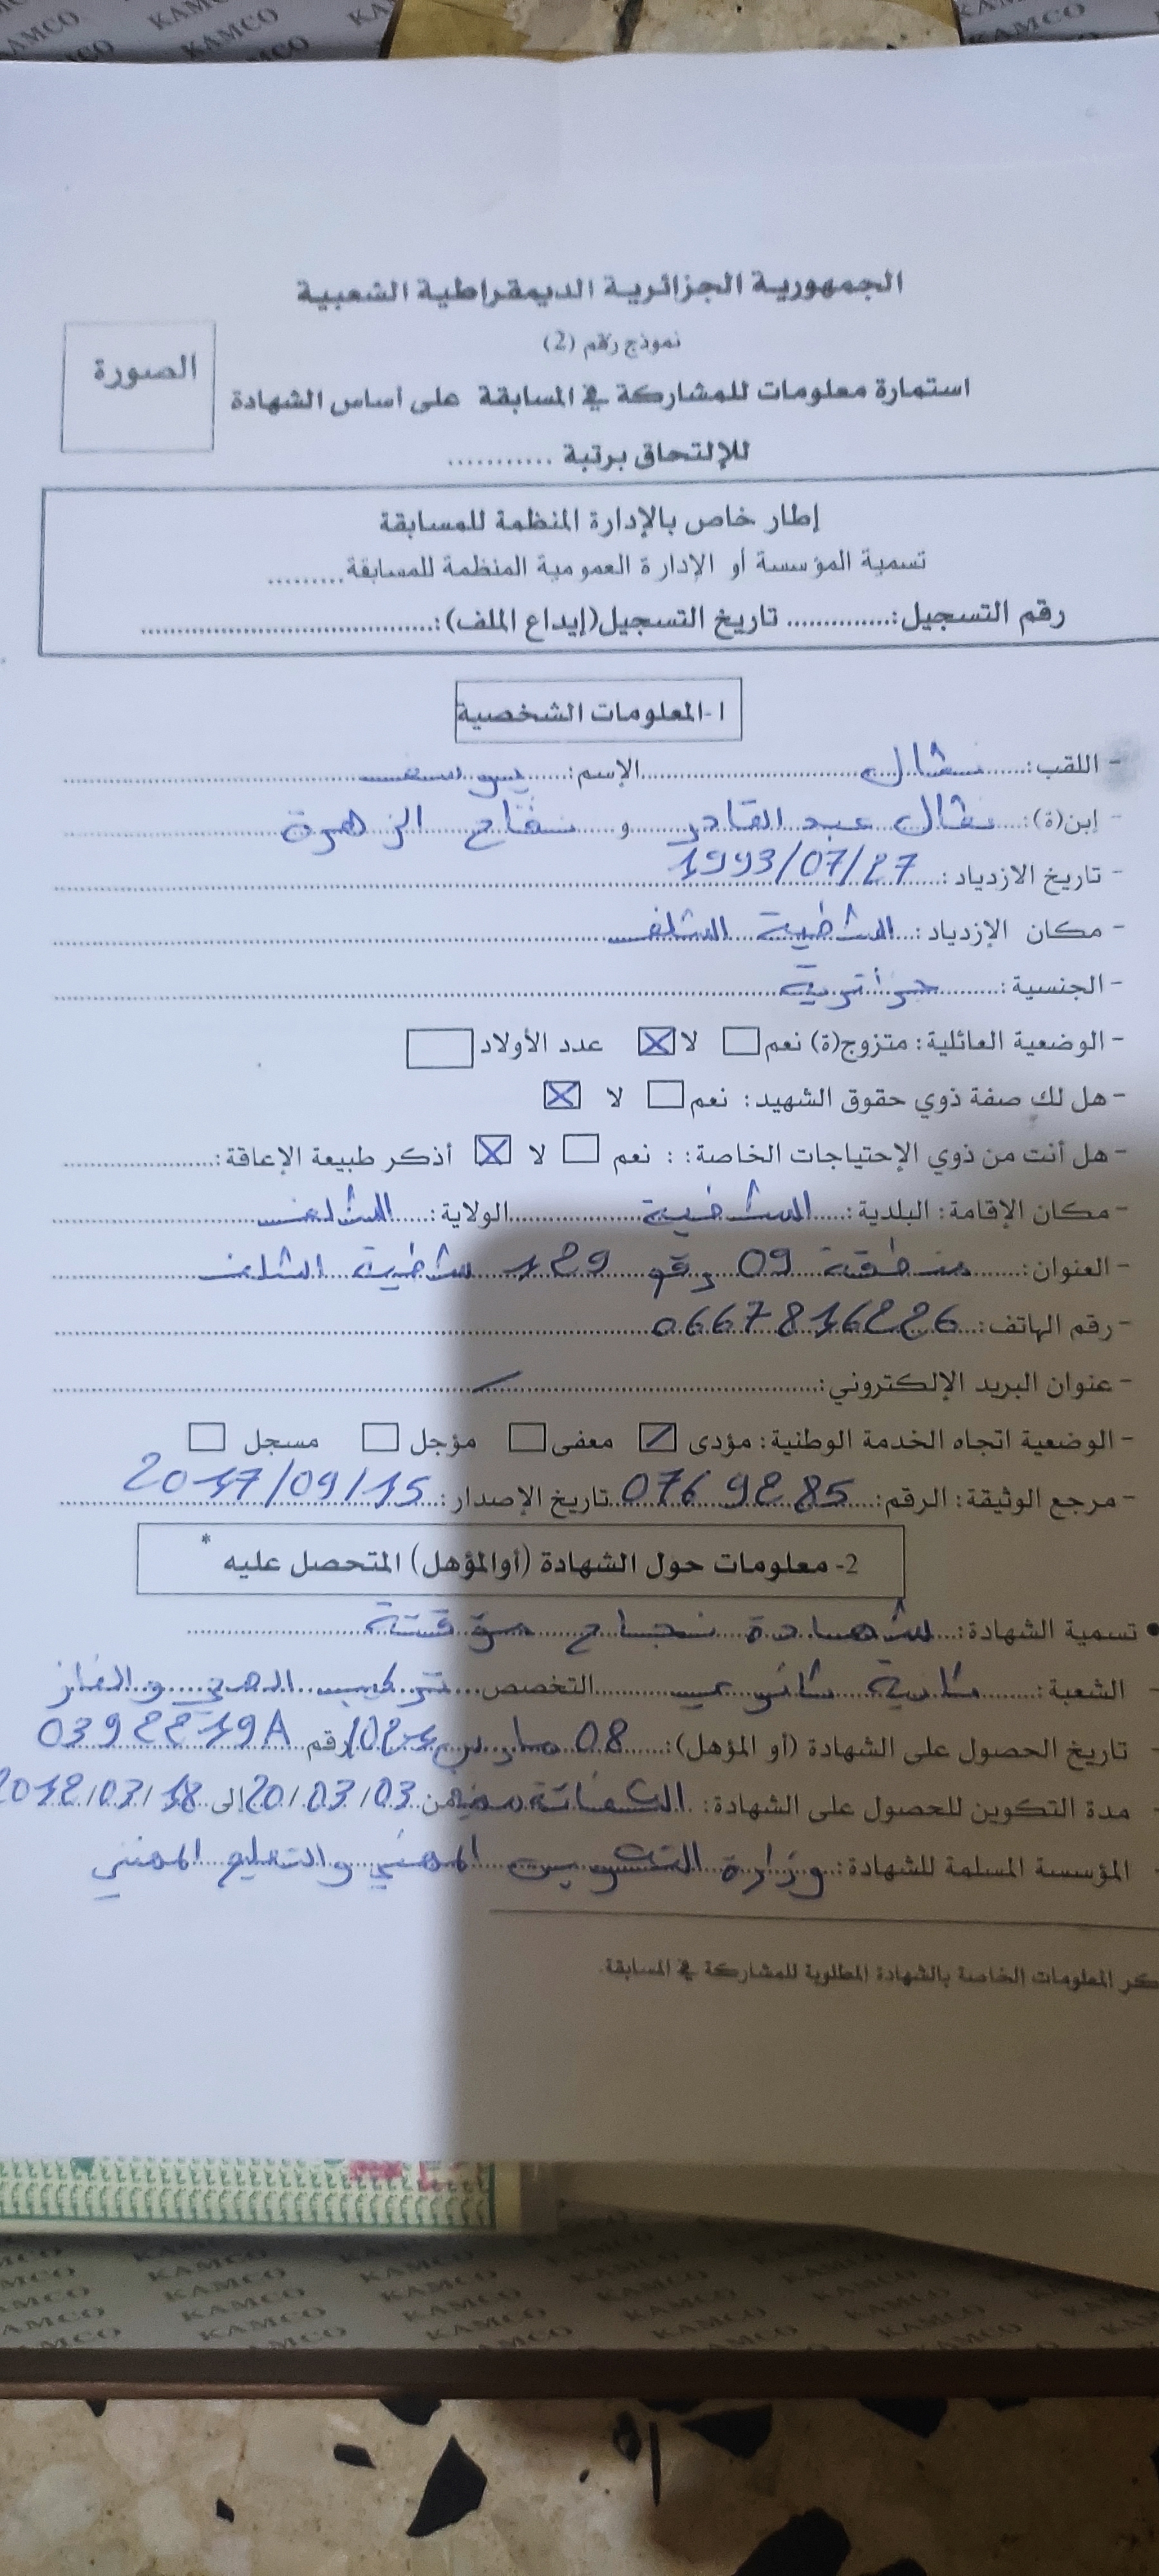 KAMCO KAMCO KAMCO
الجمهورية الجزائرية الديمقراطية الشعبية
نموذج رقم (2)
الصورة
استمارة معلومات للمشاركة في المسابقة على أساس الشهادة
للإلتحاق برتبة ...........
إطار خاص بالإدارة المنظمة للمسابقة
تسمية المؤسسة أو الإدارة العمومية المنظمة للمسابقة.........
رقم التسجيل:.............. تاريخ التسجيل(إيداع الملف):........................................
1-المعلومات الشخصية
- اللقب: نقال الإسم: يوسف
- إبن(ة): نقال عبد القادر و نفاح الزهرة
- تاريخ الازدياد: 1993/07/27
- مكان الإزدياد: الشطية الشلف
- الجنسية: جزائرية
- الوضعية العائلية: متزوج(ة) نعم لا عدد الأولاد
- هل لك صفة ذوي حقوق الشهيد: نعم لا
- هل أنت من ذوي الإحتياجات الخاصة: : نعم لا أذكر طبيعة الإعاقة:
- مكان الإقامة: البلدية: الشطية الولاية: الشلف
- العنوان: منطقة 09 رقم 129 شطية الشلف
- رقم الهاتف: 0667816226
- عنوان البريد الإلكتروني:
- الوضعية اتجاه الخدمة الوطنية: مؤدى معفى مؤجل مسجل
- مرجع الوثيقة: الرقم: 0769285 تاريخ الإصدار: 2017/09/15
2- معلومات حول الشهادة (أوالمؤهل) المتحصل عليه *
• تسمية الشهادة: شهادة نجاح مؤقتة
- الشعبة: ثانوي التخصص تركيب الصحي والغاز
- تاريخ الحصول على الشهادة (أو المؤهل): 08 مارس رقم 03922719A
- مدة التكوين للحصول على الشهادة: من 03/03/20 إلى 18/03/2012
- المؤسسة المسلمة للشهادة: وزارة التكوين المهني والتعليم المهني
كر المعلومات الخاصة بالشهادة المطلوبة للمشاركة في المسابقة.
KAMCO KAMCO KAMCO